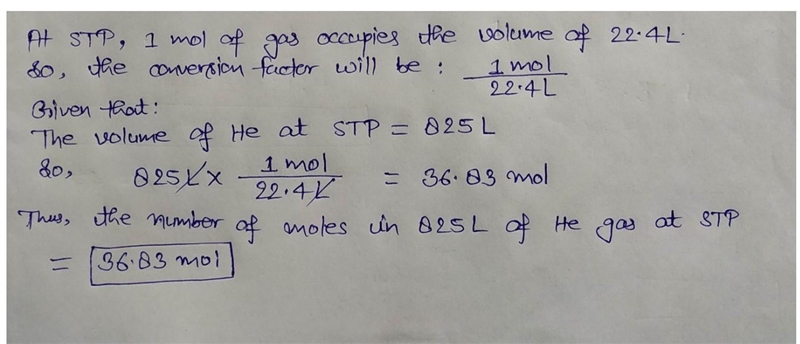 At STP, 1 mol of gas occupies the volume of 22.4L.
So, the conversion factor will be : 1 mol / 22.4L
Given that:
The volume of He at STP = 825 L
So, 825L × 1 mol / 22.4L = 36.83 mol
Thus, the number of moles in 825L of He gas at STP
= 36.83 mol